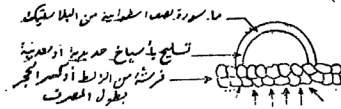 ماسورة نصف اسطوانية من البلاستيك
تسليح بأسياخ حديدية أو معدنية
فرشة من الزلط أو كسر الحجر
بطول المصرف